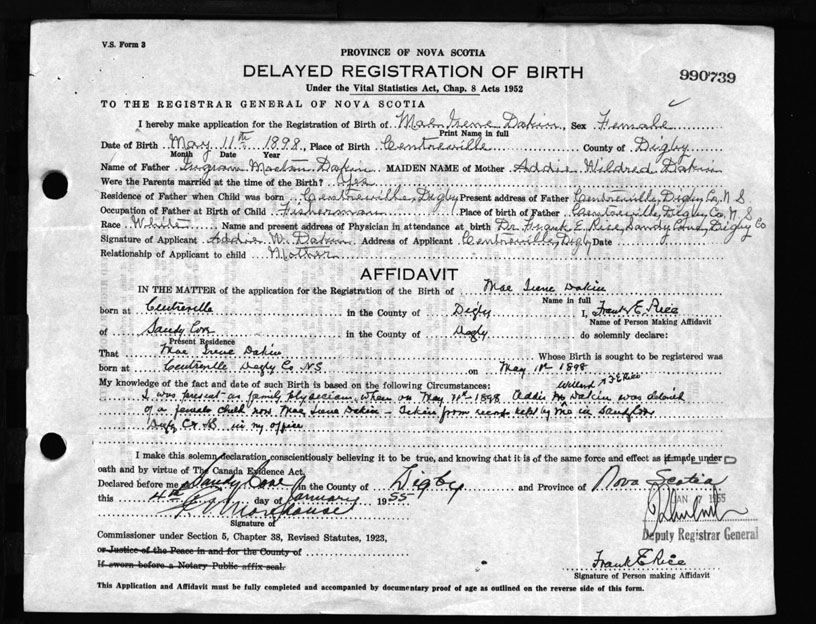 V.S. Form 3
PROVINCE OF NOVA SCOTIA
DELAYED REGISTRATION OF BIRTH
990739
Under the Vital Statistics Act, Chap. 8 Acts 1952
TO THE REGISTRAR GENERAL OF NOVA SCOTIA
I hereby make application for the Registration of Birth of Mae Irene Dakin, Sex Female
Print Name in full
Date of Birth May 11th 1898, Place of Birth Centreville County of Digby
Month Date Year
Name of Father Dakin MAIDEN NAME of Mother Addie Wildred Dakin
Were the Parents married at the time of the Birth? Yes
Residence of Father when Child was born Centreville, Digby Present address of Father Centreville, Digby Co, N.S.
Occupation of Father at Birth of Child Fisherman Place of birth of Father Centreville, Digby Co, N.S.
Race White Name and present address of Physician in attendance at birth Dr. Frank E. Rice, Sandy Cove, Digby Co
Signature of Applicant Addie W. Dakin Address of Applicant Centreville, Digby Date
Relationship of Applicant to child Mother
AFFIDAVIT
IN THE MATTER of the application for the Registration of the Birth of Mae Irene Dakin
Name in full
born at Centreville in the County of Digby I, Frank E. Rice
Name of Person Making Affidavit
of Sandy Cove in the County of Digby do solemnly declare:
Present Residence
That Mae Irene Dakin Whose Birth is sought to be registered was
born at Centreville Digby Co. N.S. on May 11th 1898
My knowledge of the fact and date of such Birth is based on the following Circumstances:
I was present as family physician, when on May 11th 1898 Addie Dakin was
of a female child now Mae Irene Dakin - Taken from records kept by me in Sandy Cove
Digby Co. N.S. in my office
I make this solemn declaration conscientiously believing it to be true, and knowing that it is of the same force and effect as if made under
oath and by virtue of The Canada Evidence Act.
Declared before me at Sandy Cove in the County of Digby and Province of Nova Scotia
this 4th day of January 1955
Morehouse
Signature of
JAN 7 1955
Deputy Registrar General
Commissioner under Section 5, Chapter 38, Revised Statutes, 1923,
or Justice of the Peace in and for the County of
If sworn before a Notary Public affix seal.
Frank E Rice
Signature of Person making Affidavit
This Application and Affidavit must be fully completed and accompanied by documentary proof of age as outlined on the reverse side of this form.